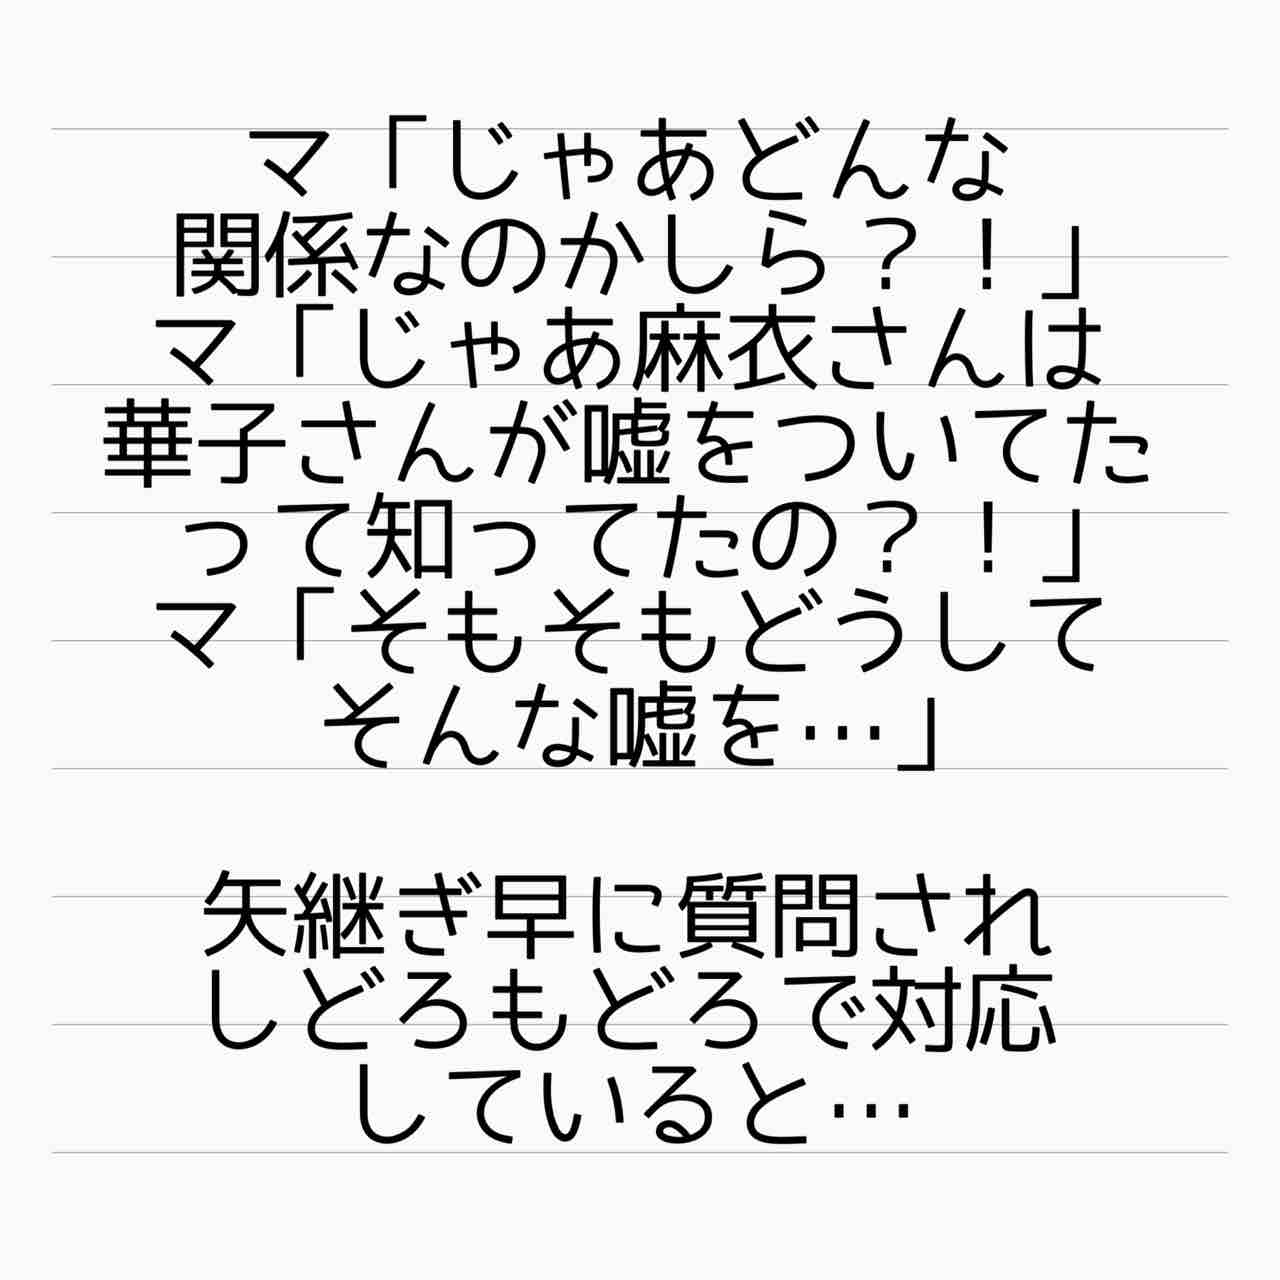 マ「じゃあどんな
関係なのかしら？！」
マ「じゃあ麻衣さんは
華子さんが嘘をついてた
って知ってたの？！」
マ「そもそもどうして
そんな嘘を…」
矢継ぎ早に質問され
しどろもどろで対応
していると…